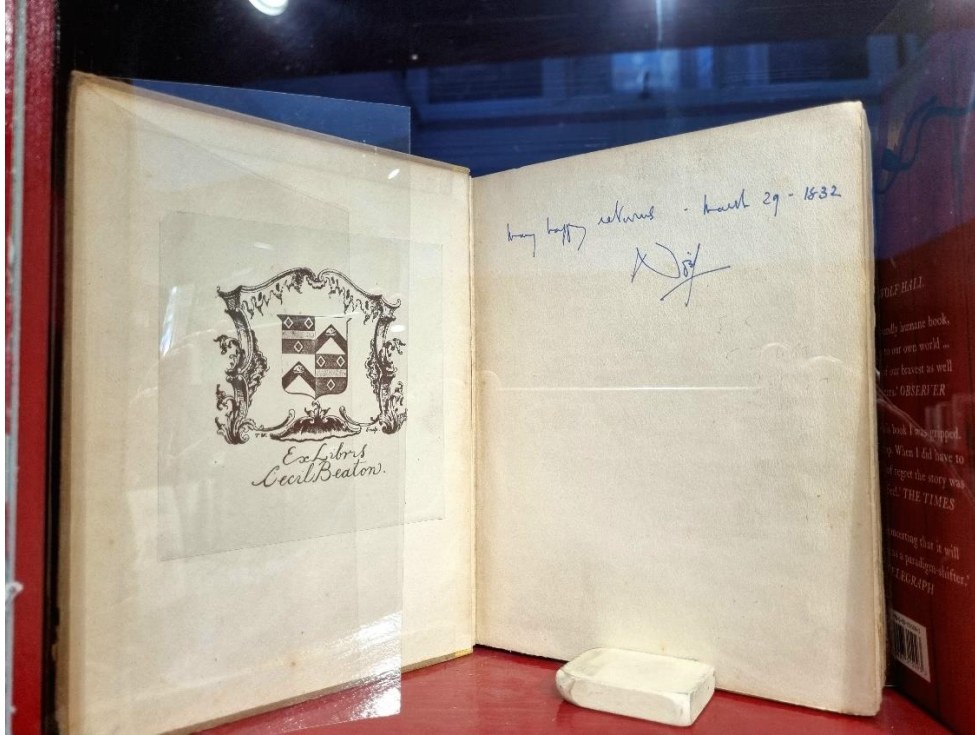 Ex Libris
Cecil Beaton.
many happy returns - March 29 - 1832
WOLF HALL
humane book,
to our own world –
of our bravest as well
OBSERVER
book I was gripped.
When I did have to
regret the story was
THE TIMES
that it will
as a paradigm-shifter.'